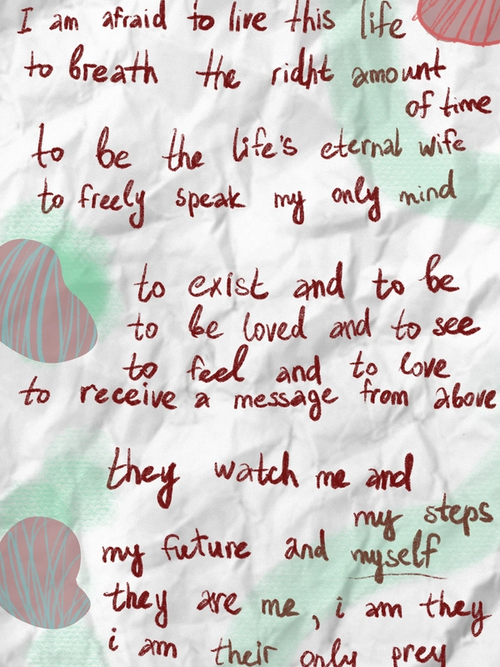 I am afraid to live this life
to breath the ridht amount
of time
to be the life's eternal wife
to freely speak my only mind
to exist and to be
to be loved and to see
to feel and to love
to receive a message from above
they watch me and
my steps
my future and myself
they are me, i am they
i am their only prey